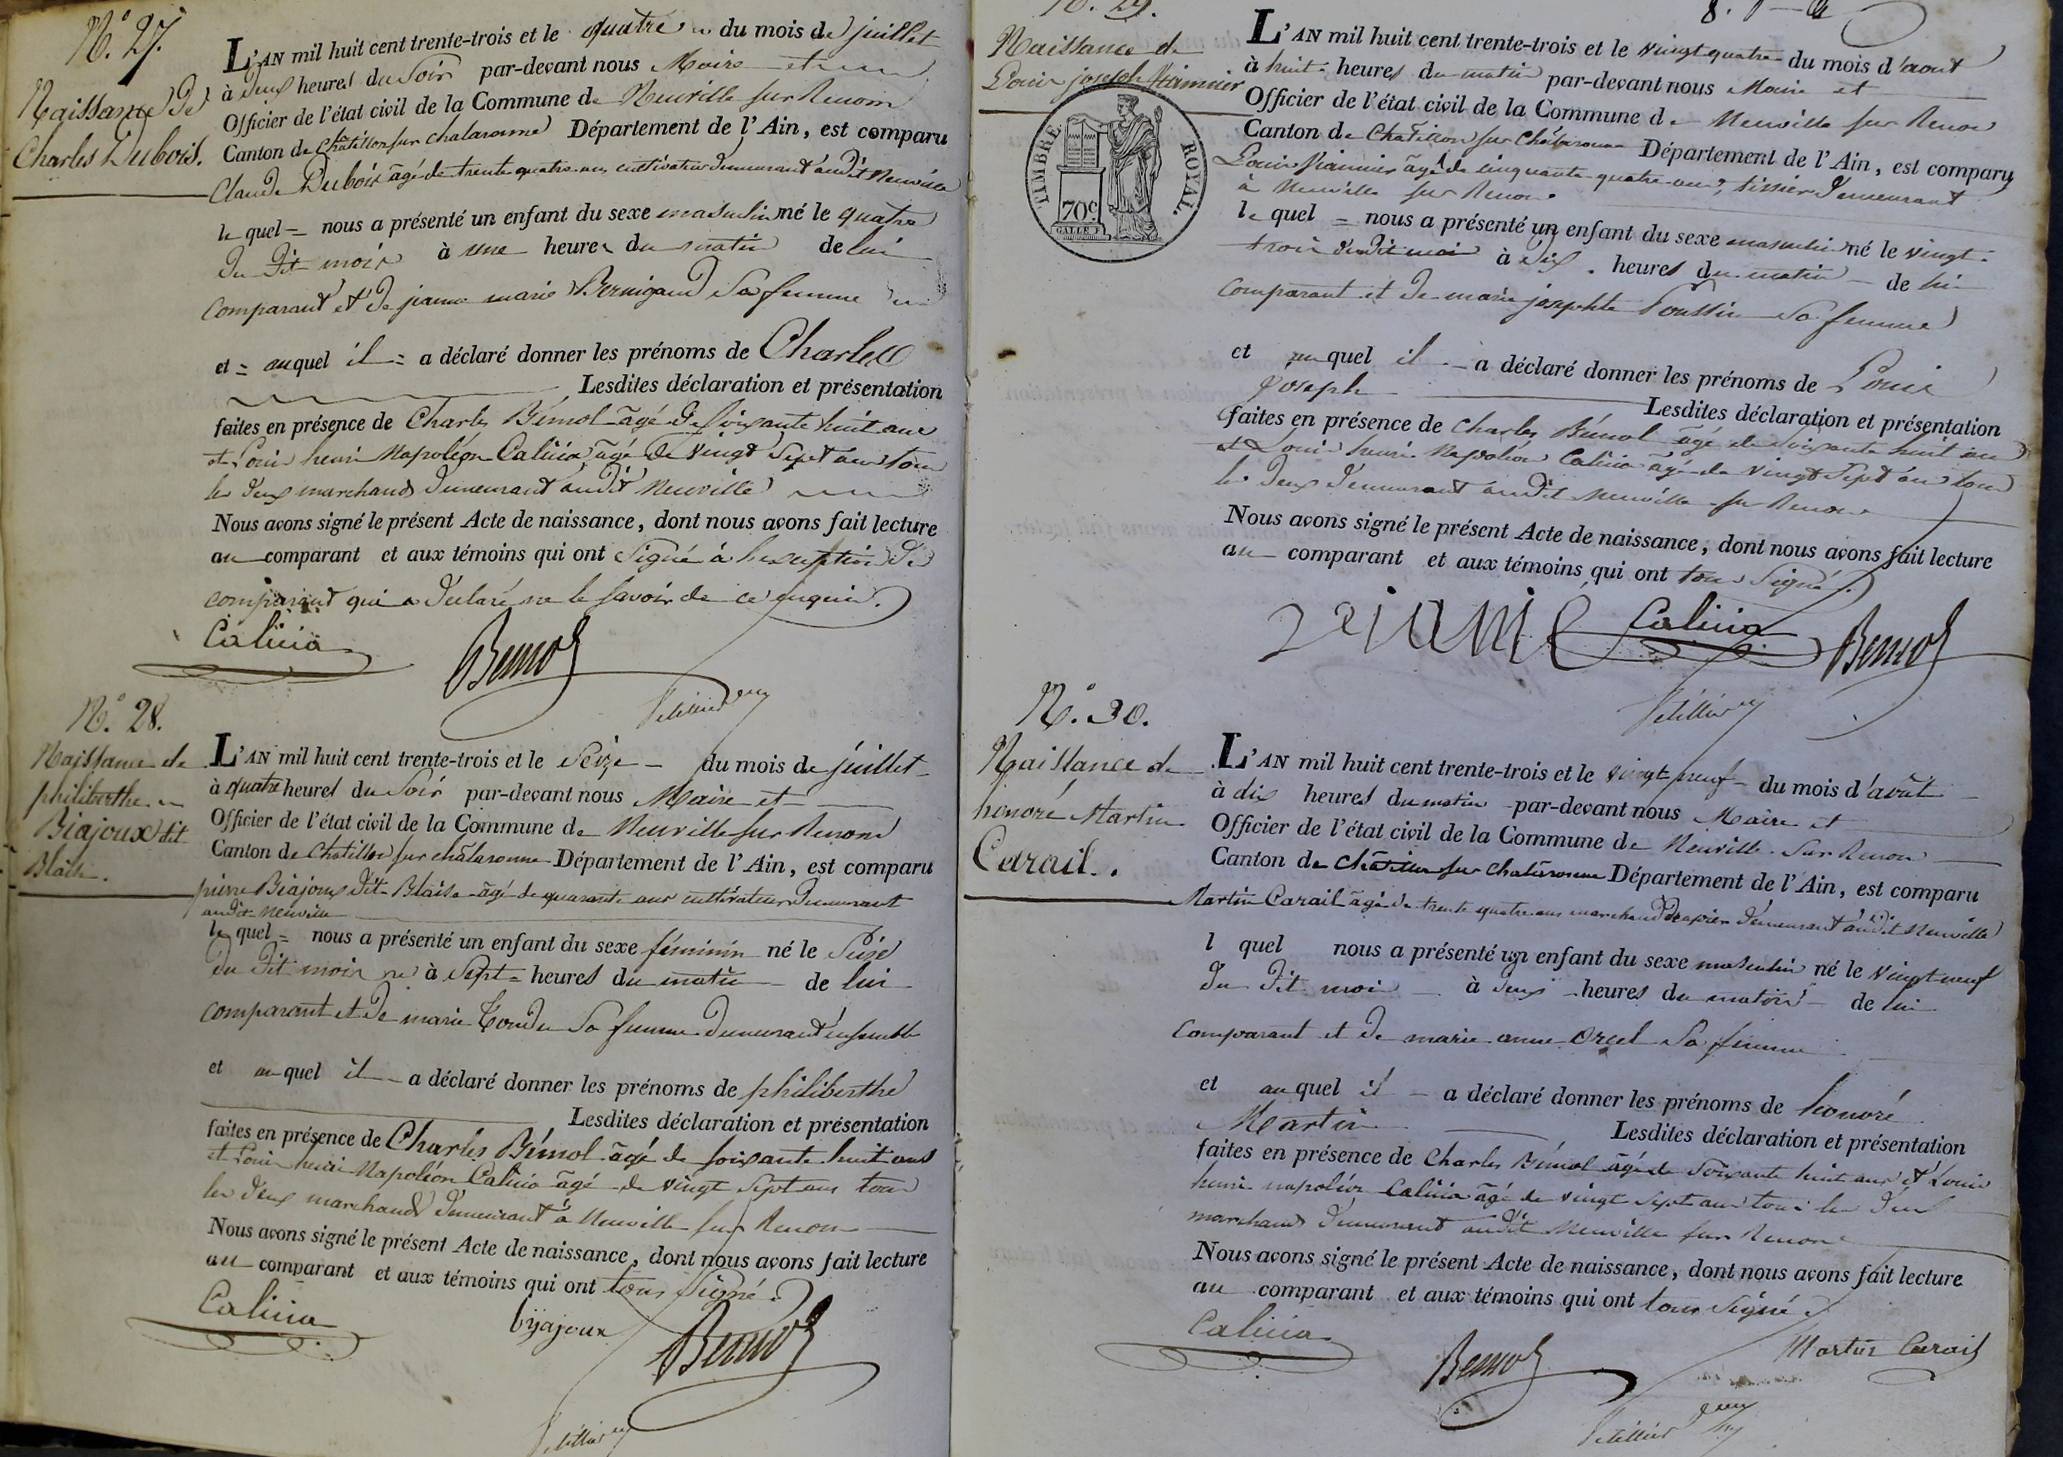 N.° 27.
Naissance de
Charles Dubois.
L'AN mil huit cent trente-trois et le quatre du mois de juillet
à deux heures du soir par-devant nous Maire et
Officier de l'état civil de la Commune de Neuville sur Renom
Canton de Châtillon sur chalaronne Département de l'Ain, est comparu
Claude Dubois âgé de trente quatre ans cultivateur demeurant audit Neuville
le quel = nous a présenté un enfant du sexe masculin né le quatre
du dit mois à une heure du matin de lui
comparant et de jeanne marie Bernigaud sa femme
et = auquel il = a déclaré donner les prénoms de Charles
Lesdites déclaration et présentation
faites en présence de Charles Bémol âgé de soixante huit ans
et Louis henri Napoléon Calicia âgé de vingt sept ans tous
les deux marchands demeurant audit Neuville
Nous avons signé le présent Acte de naissance, dont nous avons fait lecture
au comparant et aux témoins qui ont signé à l'exception de
comparant qui a déclaré ne le savoir de ce enquis.
Calicia
Bemol
N.° 28.
Naissance de
philiberthe
Biajoux dit
Blaise.
L'AN mil huit cent trente-trois et le Seize - du mois de juillet
à quatre heures du soir par-devant nous Maire et
Officier de l'état civil de la Commune de Neuville sur Renom
Canton de Chatillon sur chalaronne Département de l'Ain, est comparu
pierre Biajoux dit Blaise âgé de quarante ans cultivateur demeurant
audit Neuville
le quel = nous a présenté un enfant du sexe féminin né le Seize
du dit mois à Sept = heures du matin de lui
comparant et de marie sa femme demeurant ensemble
et auquel il - a déclaré donner les prénoms de philiberthe
Lesdites déclaration et présentation
faites en présence de Charles Bémol âgé de soixante huit ans
et Louis henri Napoléon Calicia âgé de vingt sept ans tous
les deux marchands demeurant à Neuville sur Renom
Nous avons signé le présent Acte de naissance, dont nous avons fait lecture
au comparant et aux témoins qui ont tous signé.
Calicia
bijajoux
Bemol
N.° 29.
Naissance de
Louis joseph
TIMBRE ROYAL.
70c
L'AN mil huit cent trente-trois et le vingt quatre du mois d'aout
à huit heures du matin par-devant nous Maire et
Officier de l'état civil de la Commune de Neuville sur Renom
Canton de Chatillon sur Chalaronne Département de l'Ain, est comparu
Louis âgé de cinquante quatre ans, tissier demeurant
à Neuville sur Renom.
le quel = nous a présenté un enfant du sexe masculin né le vingt
trois dudit mois à dix heures du matin - de lui
comparant et de marie josephte Poussin sa femme
et auquel il - a déclaré donner les prénoms de Louis
joseph
Lesdites déclaration et présentation
faites en présence de Charles Bémol âgé de soixante huit ans
et Louis henri Napoléon Calicia âgé de vingt sept ans tous
les deux demeurant audit Neuville sur Renom
Nous avons signé le présent Acte de naissance, dont nous avons fait lecture
au comparant et aux témoins qui ont tous signé.
Calicia
Bemol
N.° 30.
Naissance de
honoré Martin
Carail.
L'AN mil huit cent trente-trois et le vingt neuf - du mois d'août
à dix heures du matin par-devant nous Maire et
Officier de l'état civil de la Commune de Neuville sur Renom
Canton de Châtillon sur Chalaronne Département de l'Ain, est comparu
Martin Carail âgé de trente quatre ans marchand drapier demeurant audit Neuville
l quel nous a présenté un enfant du sexe masculin né le vingt neuf
du dit mois - à deux - heures du matin - de lui
comparant et de marie anne Orcel sa femme
et auquel il - a déclaré donner les prénoms de honoré
Martin
Lesdites déclaration et présentation
faites en présence de Charles Bémol âgé de soixante huit ans et Louis
henri napoléon Calicia âgé de vingt sept ans tous les deux
marchands demeurant audit Neuville sur Renom
Nous avons signé le présent Acte de naissance, dont nous avons fait lecture
au comparant et aux témoins qui ont tous signé.
Calicia
Bemol
Martin Carail